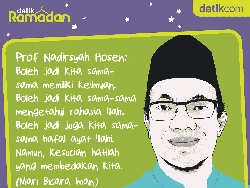 detik Ramadan
detikcom
Prof Nadirsyah Hosen:
Boleh jadi kita sama-
sama memiliki keilmuan.
Boleh jadi kita sama-sama
mengetahui rahasia Ilahi.
Boleh jadi juga kita sama-
sama hafal ayat Ilahi.
Namun, kesucian hatilah
yang membedakan kita.
(Mari Bicara Iman)